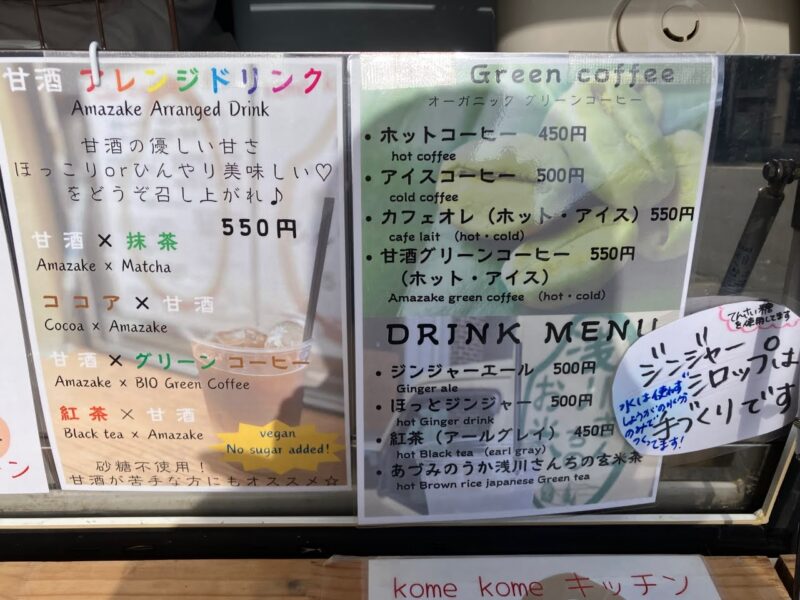 甘酒 アレンジドリンク
Amazake Arranged Drink
甘酒の優しい甘さ
ほっこりorひんやり美味しい♡
をどうぞ召し上がれ♪
550円
甘酒×抹茶
Amazake × Matcha
ココア×甘酒
Cocoa × Amazake
甘酒×グリーンコーヒー
Amazake × BIO Green Coffee
紅茶×甘酒
Black tea × Amazake
vegan
No sugar added!
砂糖不使用！
甘酒が苦手な方にもオススメ☆
Green coffee
オーガニック グリーンコーヒー
• ホットコーヒー 450円
hot coffee
• アイスコーヒー 500円
cold coffee
• カフェオレ（ホット・アイス）550円
cafe lait （hot・cold）
• 甘酒グリーンコーヒー 550円
（ホット・アイス）
Amazake green coffee （hot・cold）
DRINK MENU
• ジンジャーエール 500円
Ginger ale
• ほっとジンジャー 500円
hot Ginger drink
• 紅茶（アールグレイ）450円
hot Black tea （earl gray）
• あづみのうか浅川さんちの玄米茶
hot Brown rice japanese Green tea
てんさい糖
を使用してます
ジンジャー
シロップは
手づくりです
水は使わず
しょうがの水分
のみで
つくってます!
kome kome キッチン
ン